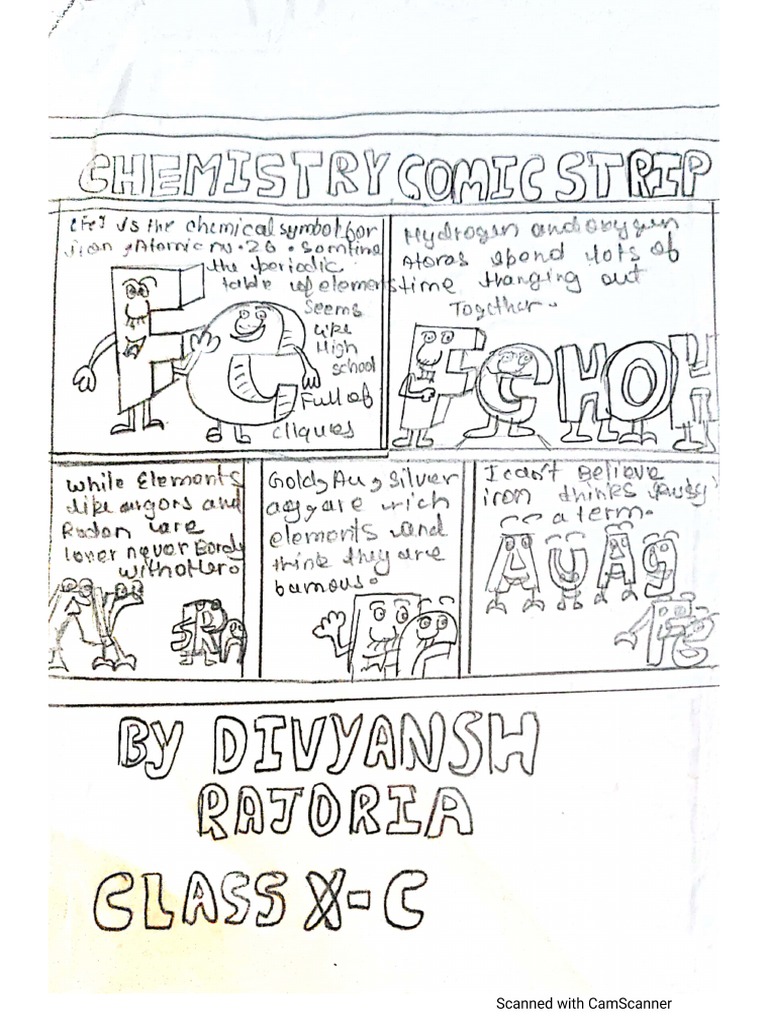 CHEMISTRY COMIC STRIP
(Fe) is the chemical symbol for
iron, Atomic no. 26. Somtime
the periodic
table of elements
seems
like
High
school
Full of
cliques
Hydrogen and oxygen
Atoms spend lots of
time Hanging out
Together.
Fe
FeHOH
While Elements
like argons and
Radon are
loner never Bond
with other.
Ar
Rn
Gold, Au, Silver
ag, are rich
elements and
think they are
bamous.
I can't Believe
iron thinks
a term.
AuAg
Fe
BY DIVYANSH
RAJORIA
CLASS X-C
Scanned with CamScanner